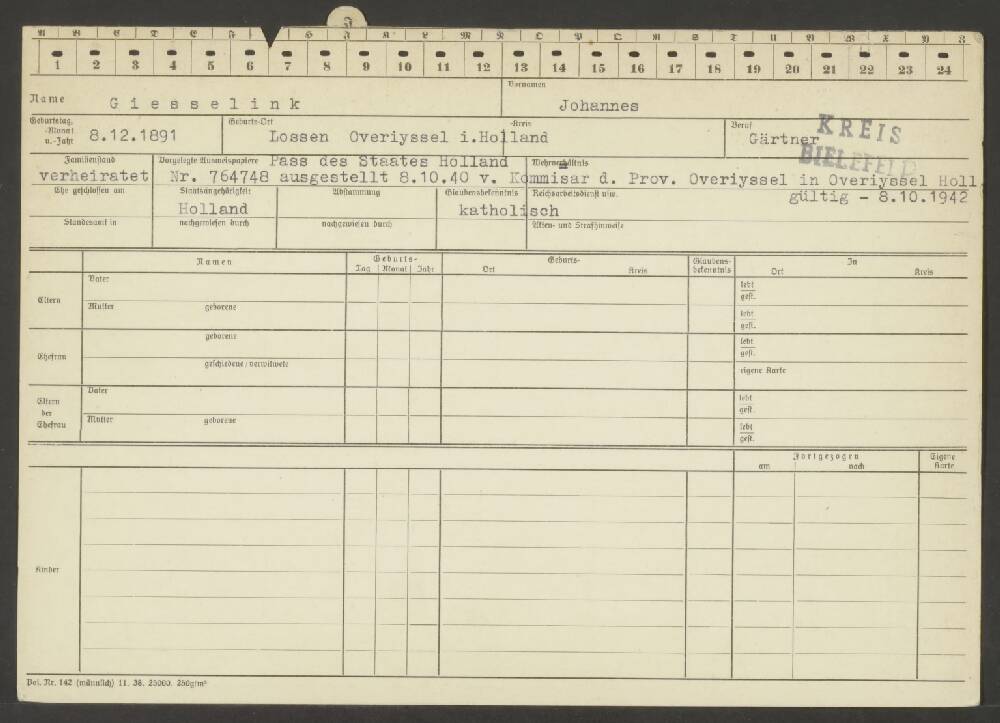 J
A B C D E F H J K L M N O P Q R S T U V W X Y Z
1 2 3 4 5 6 7 8 9 10 11 12 13 14 15 16 17 18 19 20 21 22 23 24
Name Giesselink Vornamen Johannes
Geburtstag, -Monat u.-Jahr 8.12.1891 Geburts-Ort Lossen Overiyssel i.Holland -Kreis Beruf Gärtner
KREIS
BIELEFELD
Familienstand Vorgelegte Ausweispapiere Pass des Staates Holland Wehrverhältnis
verheiratet Nr. 764748 ausgestellt 8.10.40 v. Kommisar d. Prov. Overiyssel in Overiyssel Holl.
Ehe geschlossen am Staatsangehörigkeit Abstammung Glaubensbekenntnis Reichsarbeitsdienst usw. gültig - 8.10.1942
Holland katholisch
Standesamt in nachgewiesen durch nachgewiesen durch Akten- und Strafhinweise
Namen Geburts- Geburts- Glaubens- In
Tag Monat Jahr Ort Kreis bekenntnis Ort Kreis
Eltern Vater lebt
gest.
Mutter geborene lebt
gest.
Ehefrau geborene lebt
gest.
geschiedene / verwitwete eigene Karte
Eltern der Ehefrau Vater lebt
gest.
Mutter geborene lebt
gest.
Fortgezogen Eigene
am nach Karte
Kinder
Pol. Nr. 142 (männlich) 11. 38. 25000. 250g/m²